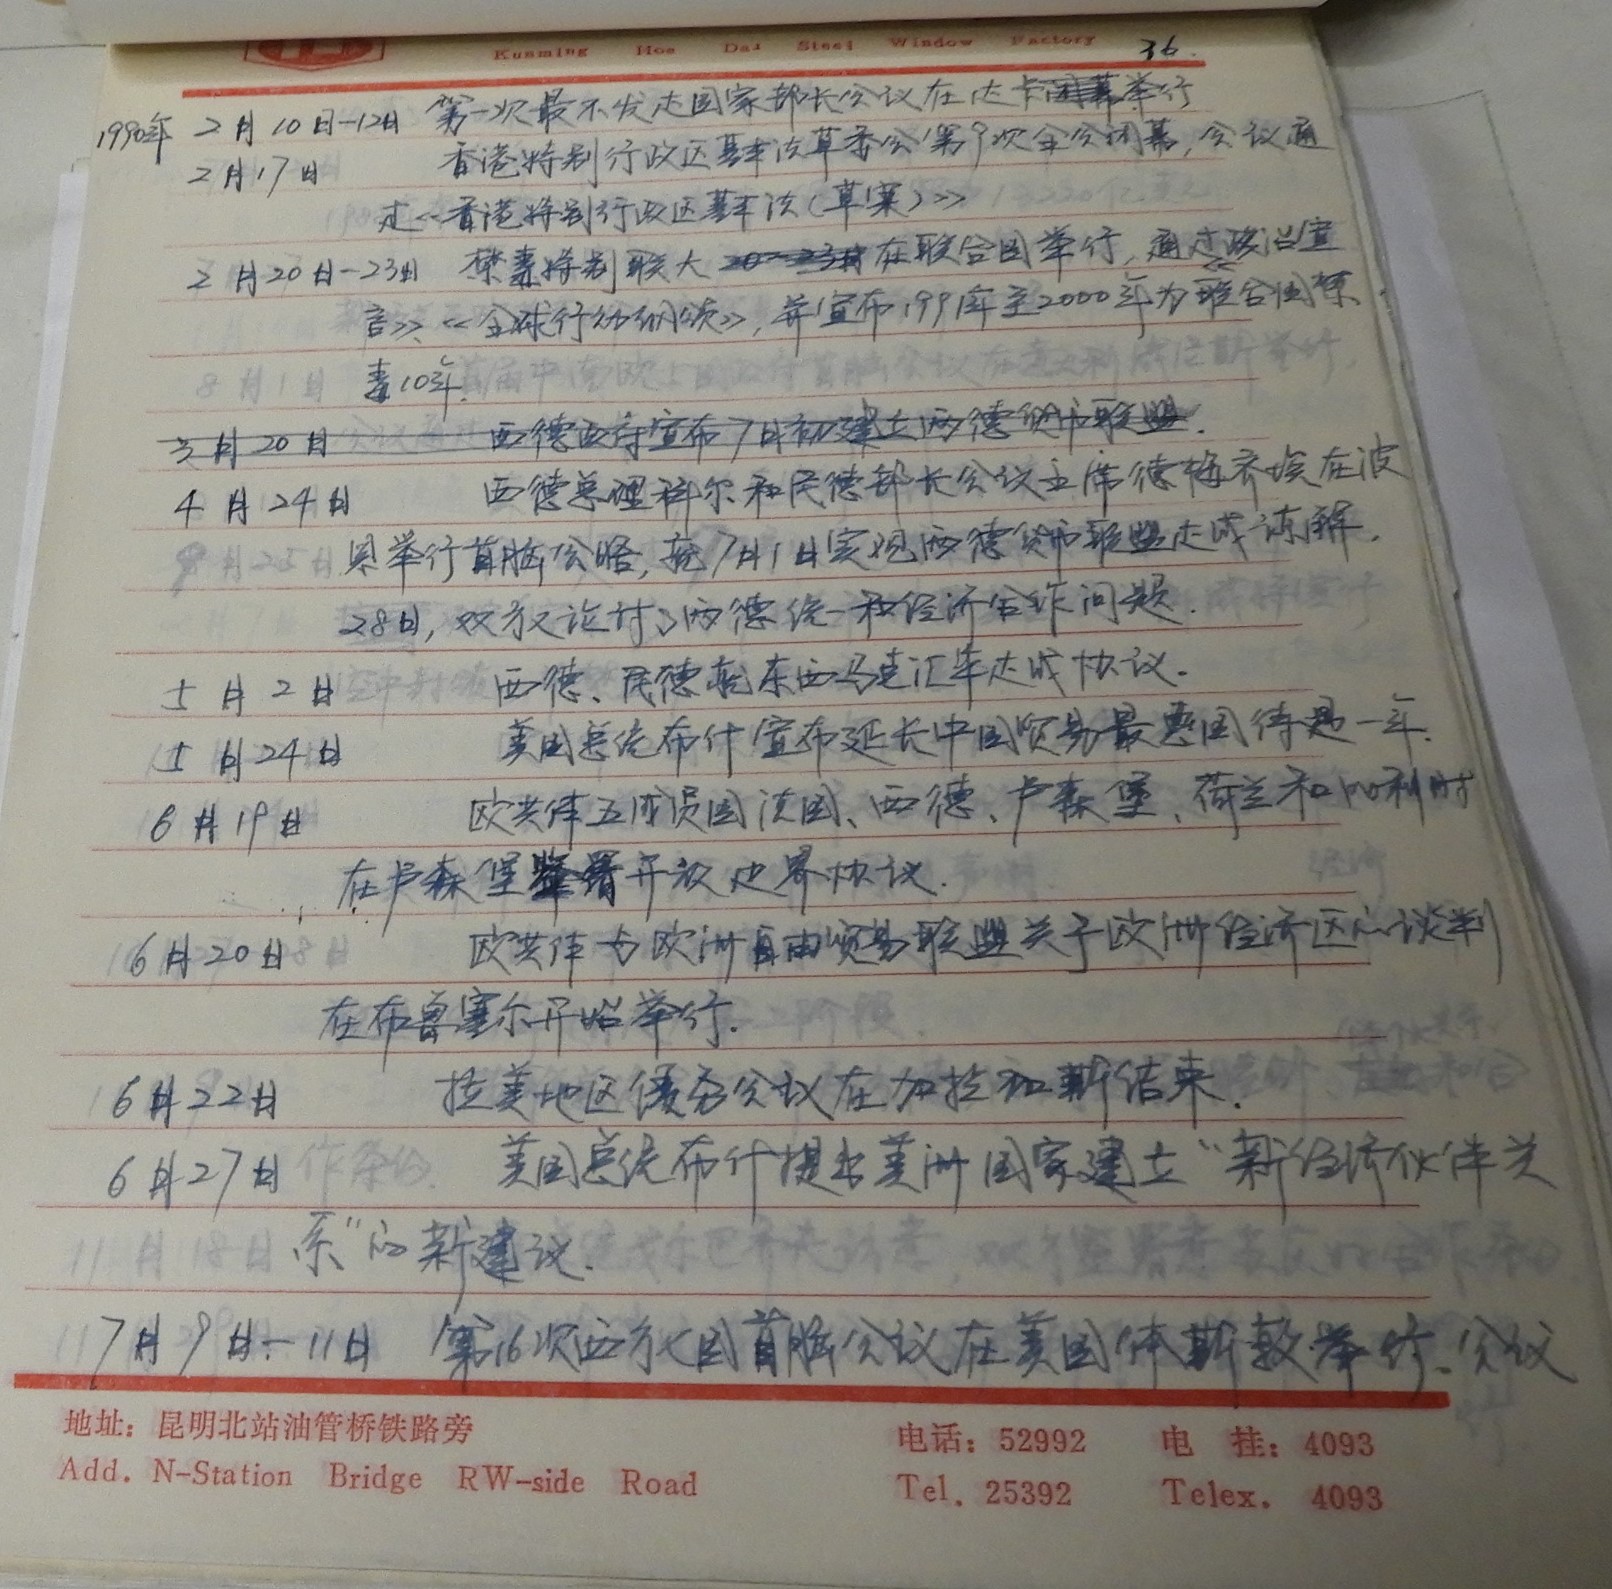 Kunming Hoe Dai Steel Window Factory
36.
1990年 2月10日-12日 第一次最不发达国家部长会议在达卡闭幕举行
2月17日 香港特别行政区基本法草委会第9次全会闭幕,会议通
过<<香港特别行政区基本法(草案)>>
2月20日-23日 禁毒特别联大20-23日在联合国举行,通过<<政治宣
言>>、<<全球行动纲领>>,并宣布1991年至2000年为联合国禁
毒10年.
3月20日 西德政府宣布7月初建立两德货币联盟.
4月24日 西德总理科尔和民德部长会议主席德梅齐埃在波
恩举行首脑会晤,就7月1日实现两德货币联盟达成谅解.
28日,双方又讨论了两德统一和经济合作问题.
5月2日 西德、民德就东西马克汇率达成协议.
5月24日 美国总统布什宣布延长中国贸易最惠国待遇一年.
6月19日 欧共体五成员国法国、西德、卢森堡、荷兰和比利时
在卢森堡签署开放边界协议.
6月20日 欧共体与欧洲自由贸易联盟关于欧洲经济区的谈判
在布鲁塞尔开始举行.
6月22日 拉美地区债务会议在加拉加斯结束.
6月27日 美国总统布什提出美洲国家建立“新经济伙伴关
系”的新建议.
7月9日-11日 第16次西方七国首脑会议在美国休斯敦举行.会议
地址：昆明北站油管桥铁路旁 电话：52992 电 挂：4093
Add. N-Station Bridge RW-side Road Tel. 25392 Telex. 4093